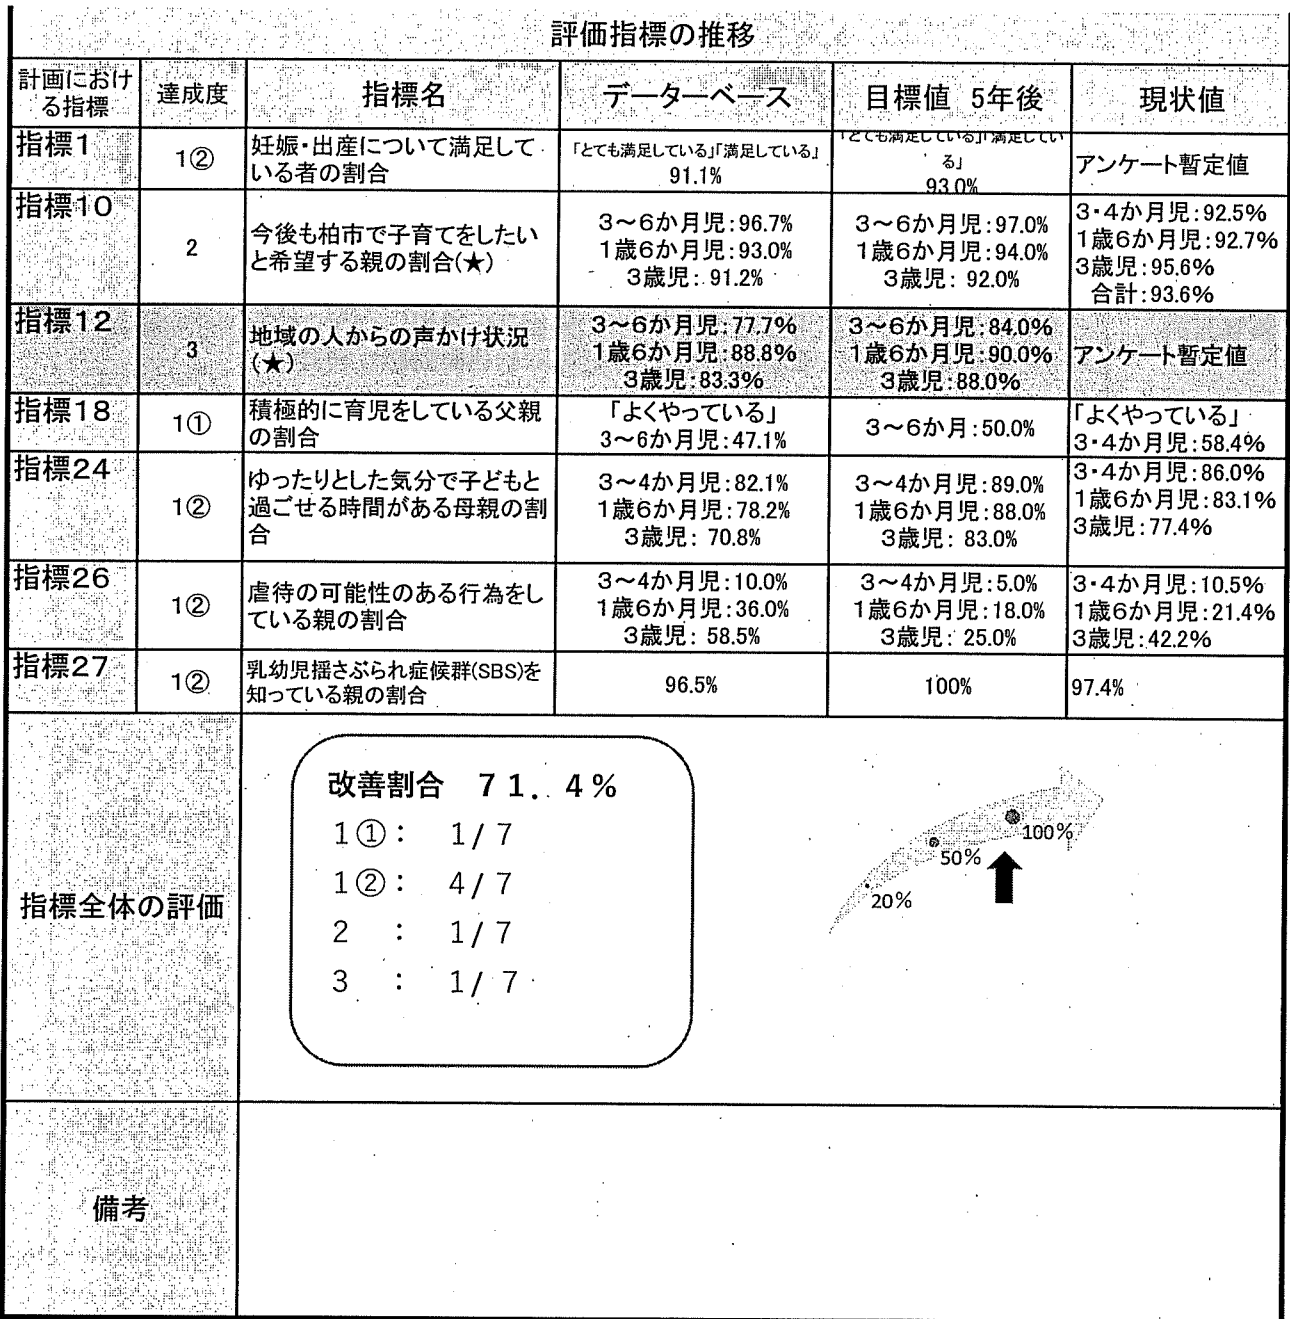 評価指標の推移
計画におけ
る指標
達成度
指標名
データーベース
目標値 5年後
現状値
指標1
1②
妊娠・出産について満足して
いる者の割合
「とても満足している」「満足している」
91.1%
「とても満足している」「満足してい
る」
93.0%
アンケート暫定値
指標10
2
今後も柏市で子育てをしたい
と希望する親の割合(★)
3~6か月児:96.7%
1歳6か月児:93.0%
3歳児:91.2%
3~6か月児:97.0%
1歳6か月児:94.0%
3歳児: 92.0%
3・4か月児:92.5%
1歳6か月児:92.7%
3歳児:95.6%
合計:93.6%
指標12
3
地域の人からの声かけ状況
(★)
3~6か月児:77.7%
1歳6か月児:88.8%
3歳児:83.3%
3~6か月児:84.0%
1歳6か月児:90.0%
3歳児:88.0%
アンケート暫定値
指標18
1①
積極的に育児をしている父親
の割合
「よくやっている」
3~6か月児:47.1%
3~6か月:50.0%
「よくやっている」
3・4か月児:58.4%
指標24
1②
ゆったりとした気分で子どもと
過ごせる時間がある母親の割
合
3~4か月児:82.1%
1歳6か月児:78.2%
3歳児: 70.8%
3~4か月児:89.0%
1歳6か月児:88.0%
3歳児: 83.0%
3・4か月児:86.0%
1歳6か月児:83.1%
3歳児:77.4%
指標26
1②
虐待の可能性のある行為をし
ている親の割合
3~4か月児:10.0%
1歳6か月児:36.0%
3歳児: 58.5%
3~4か月児:5.0%
1歳6か月児:18.0%
3歳児: 25.0%
3・4か月児:10.5%
1歳6か月児:21.4%
3歳児:42.2%
指標27
1②
乳幼児揺さぶられ症候群(SBS)を
知っている親の割合
96.5%
100%
97.4%
指標全体の評価
改善割合 71.4%
1①: 1/7
1②: 4/7
2 : 1/7
3 : 1/7
100%
50%
20%
備考